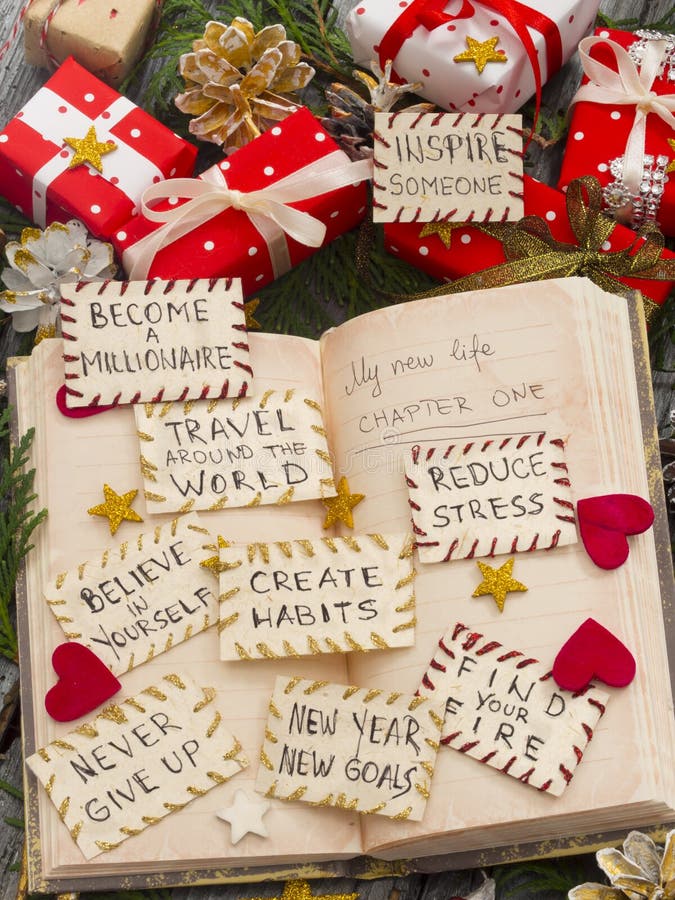 INSPIRE
SOMEONE
BECOME
A
MILLIONAIRE
My new life
CHAPTER ONE
TRAVEL
AROUND THE
WORLD
REDUCE
STRESS
BELIEVE
IN
YOURSELF
CREATE
HABITS
FIND
YOUR
FIRE
NEVER
GIVE UP
NEW YEAR
NEW GOALS